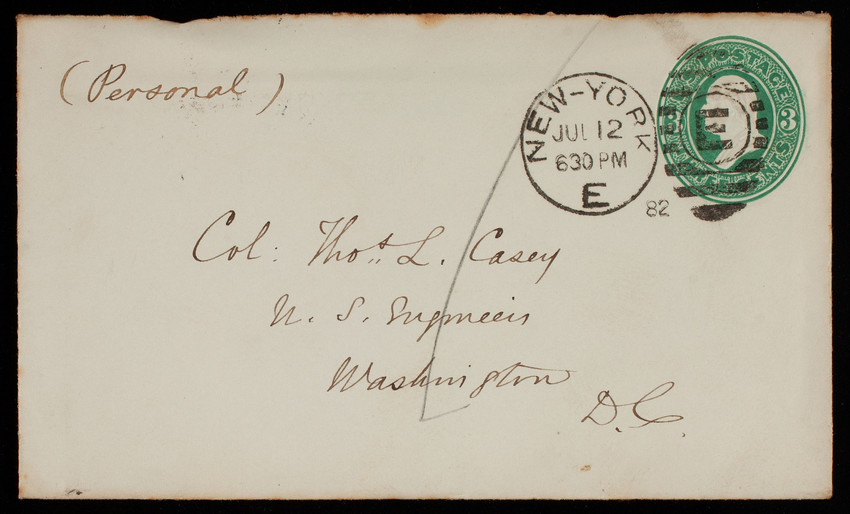 (Personal)
NEW-YORK
JUL 12
630 PM
E
82
E
POSTAGE
3 3
CENTS
Col: Thos. L. Casey
U. S. Engineers
Washington
D.C.